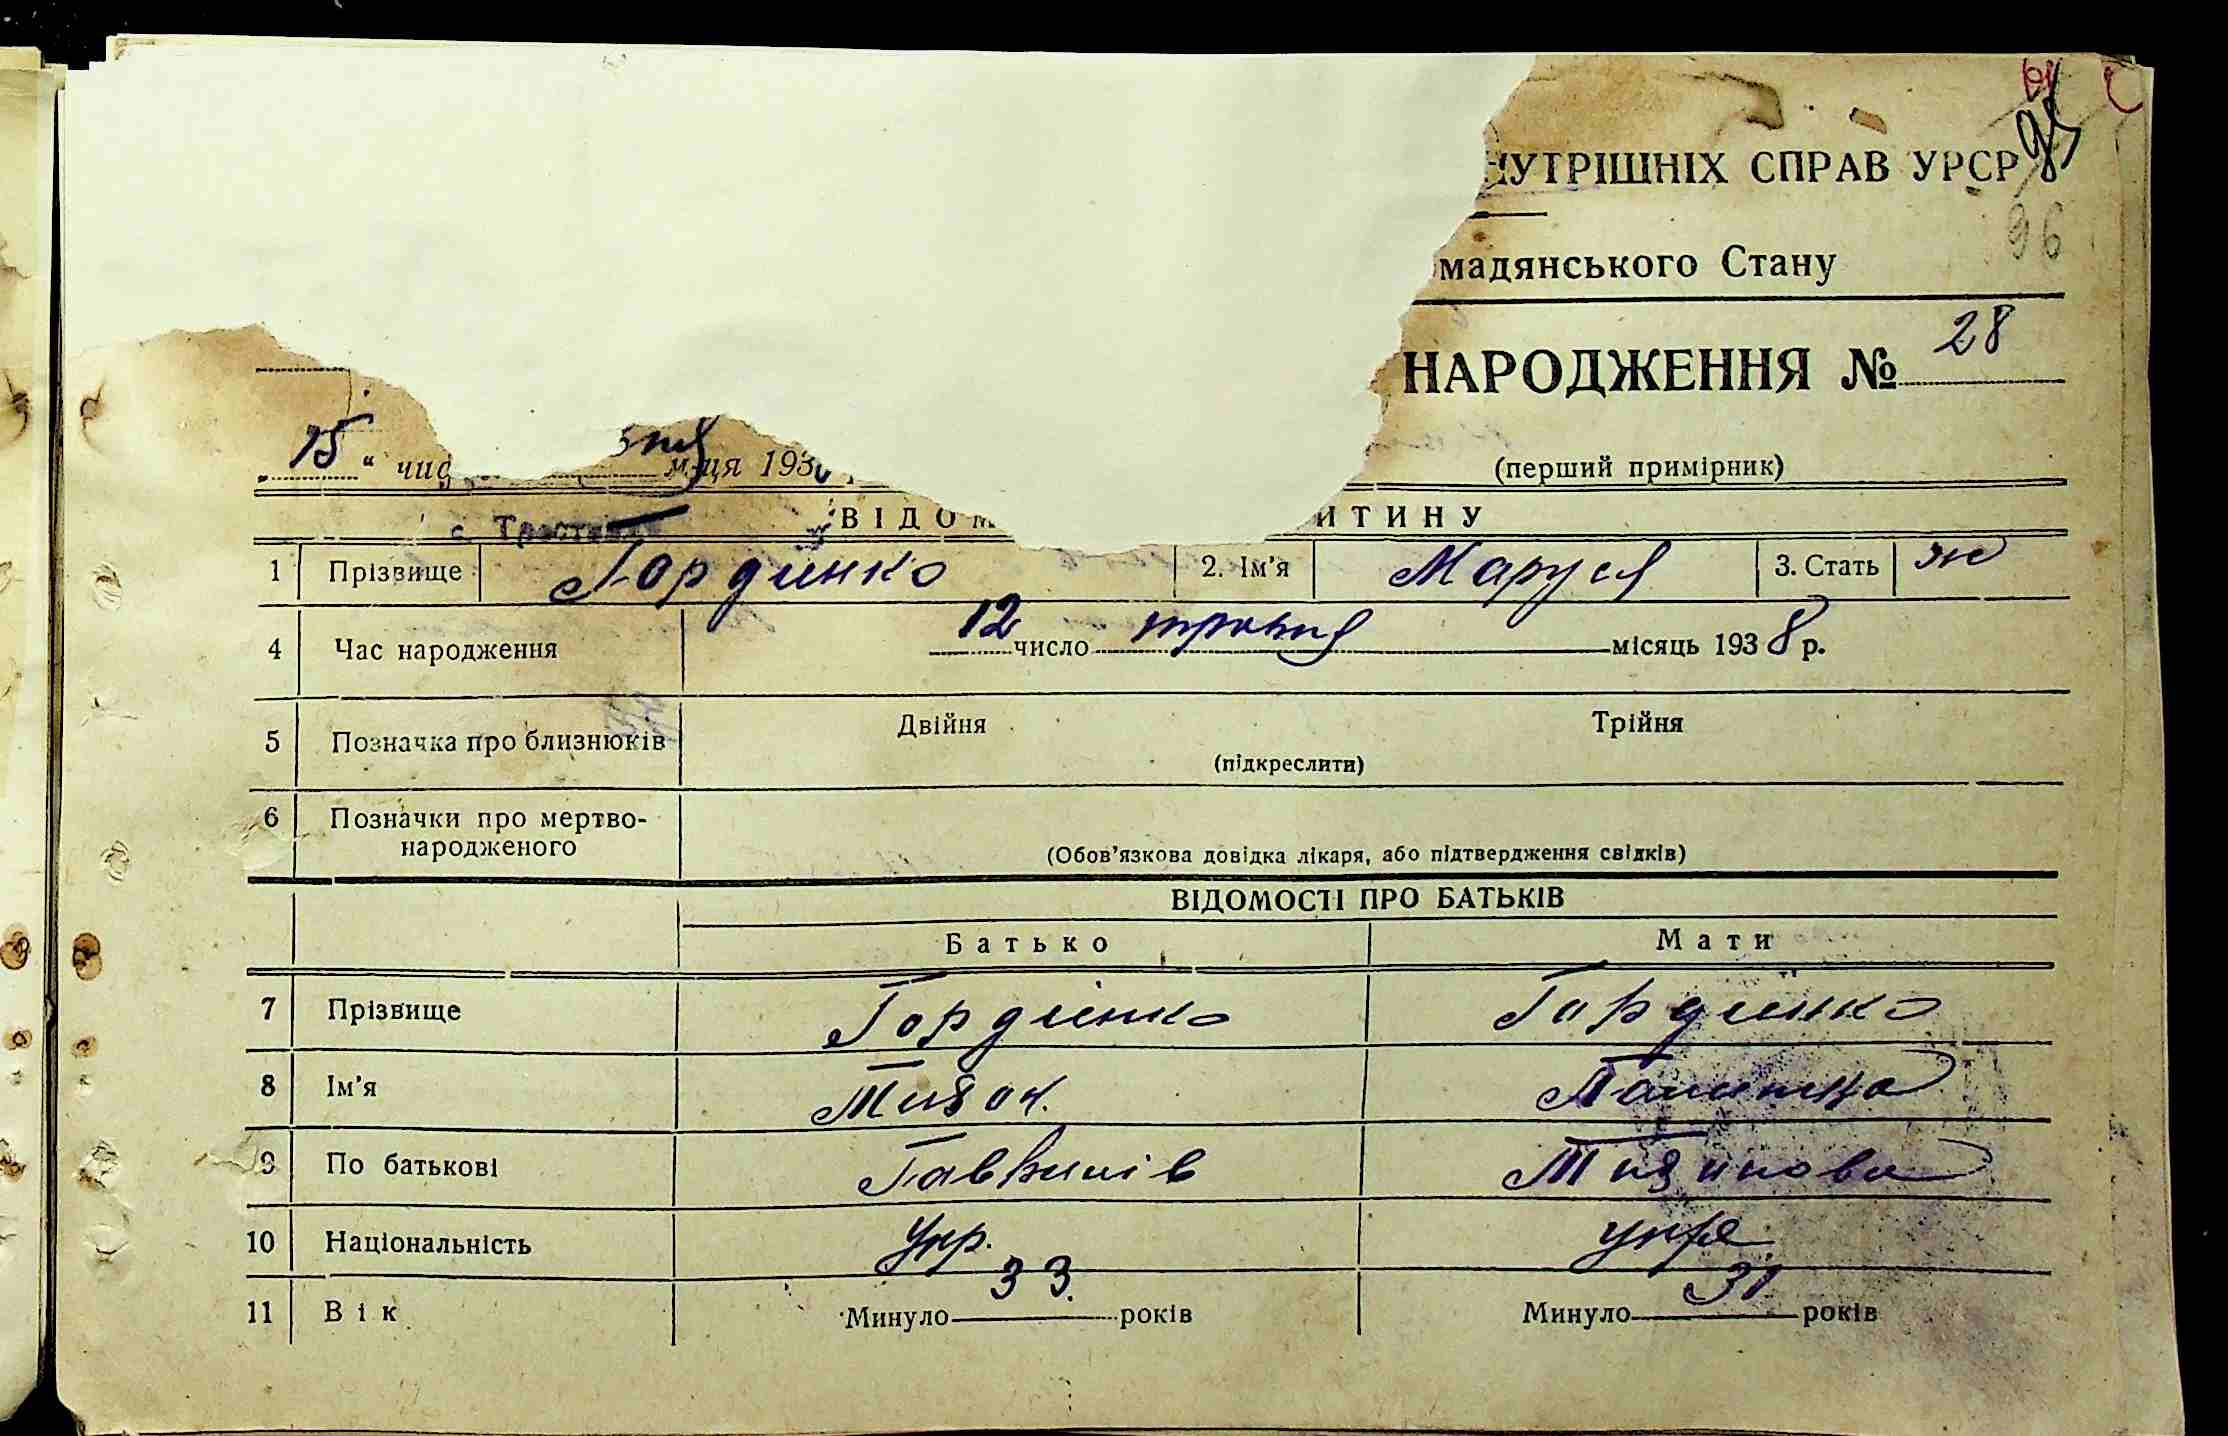 НУТРІШНІХ СПРАВ УРСР 95
96
мадянського Стану
НАРОДЖЕННЯ № 28
"15" чис м-ця 193
(перший примірник)
ВІДОМ ИТИНУ
с.
1 Прізвище Гордієнко 2. Ім'я Маруся 3. Стать ж
4 Час народження 12 число травня місяць 1938 р.
5 Позначка про близнюків Двійня Трійня
(підкреслити)
6 Позначки про мертво-
народженого
(Обов'язкова довідка лікаря, або підтвердження свідків)
ВІДОМОСТІ ПРО БАТЬКІВ
Батько Мати
7 Прізвище Гордієнко Гордієнко
8 Ім'я Тихон
9 По батькові Гаврилів Тихонова
10 Національність Укр. укр
11 Вік Минуло 33. років Минуло 31 років